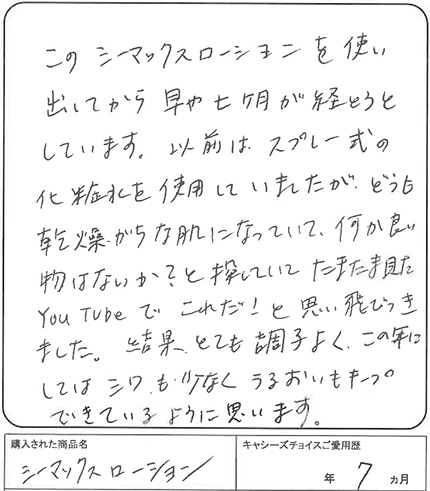 このシーマックスローションを使い
出してから早や七ケ月が経とうと
しています。以前はスプレー式の
化粧水を使用していましたが、どうも
乾燥がちな肌になっていて、何か良い
物はないか?と探していてたまたま見た
YouTubeでこれだ!と思い飛びつき
ました。結果、とても調子よく、この年に
してはシワも少なくうるおいもキープ
できているように思います。
購入された商品名
キャシーズチョイスご愛用歴
シーマックスローション
年 7 ヵ月